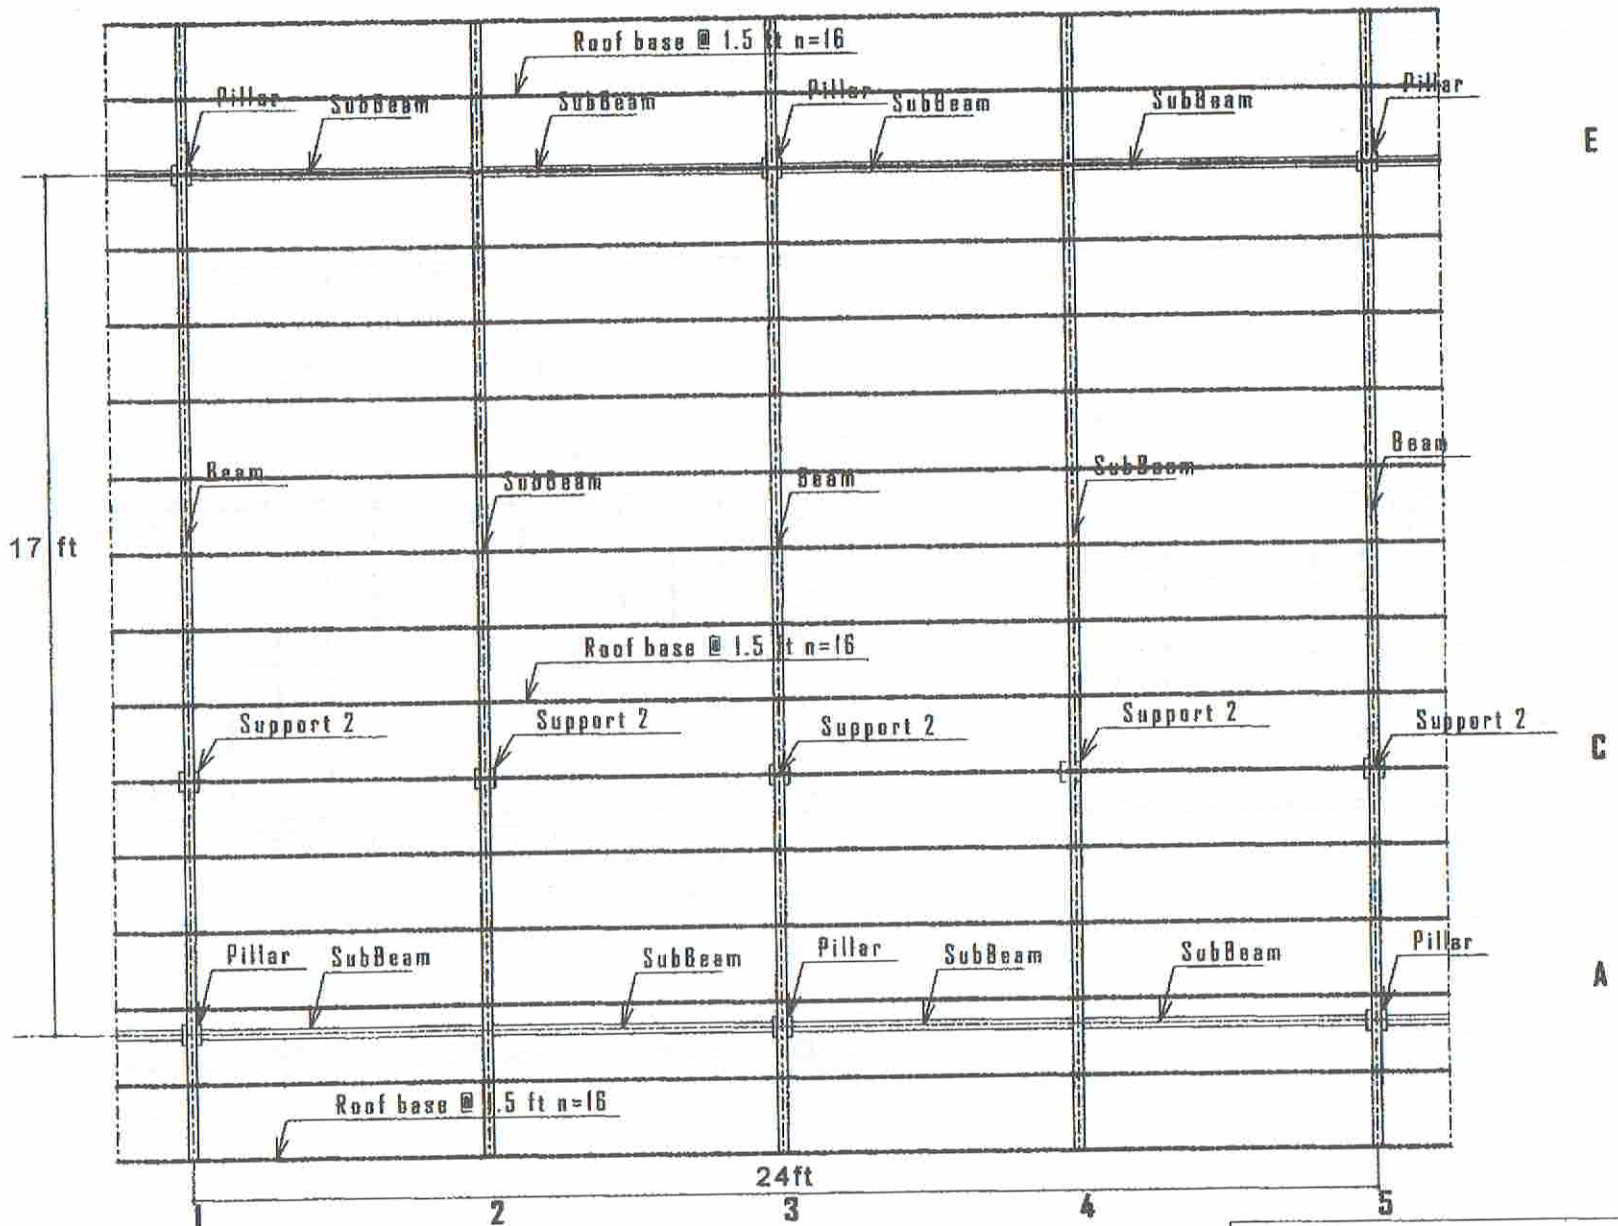 Roof base @ 1.5 ft n=16
Pillar
SubBeam
SubBeam
Pillar
SubBeam
SubBeam
Pillar
E
Beam
SubBeam
Beam
SubBeam
Beam
17 ft
Roof base @ 1.5 ft n=16
Support 2
Support 2
Support 2
Support 2
Support 2
C
Pillar
SubBeam
SubBeam
Pillar
SubBeam
SubBeam
Pillar
A
Roof base @ 1.5 ft n=16
24ft
1
2
3
4
5